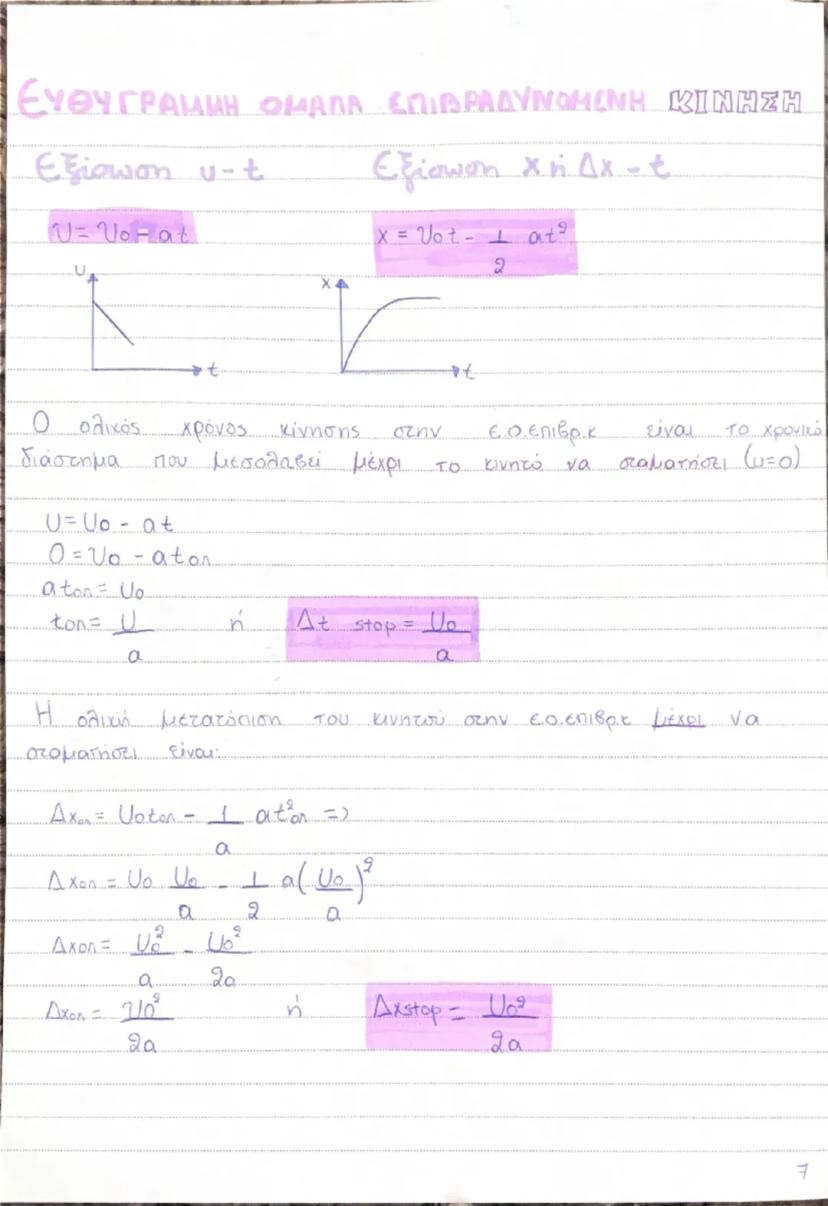 ΕΥΘΥΓΡΑΜΜΗ ΟΜΑΛΑ ΕΠΙΒΡΑΔΥΝΟΜΕΝΗ ΚΙΝΗΣΗ
Εξίσωση υ-t Εξίσωση x ή Δx - t
υ = υ₀ - at x = υ₀t - 1/2 at²
υ x
t t
Ο ολικός χρόνος κίνησης στην ε.ο.επιβρ.κ είναι το χρονικό
διάστημα που μεσολαβεί μέχρι το κινητό να σταματήσει (υ=0)
υ = υ₀ - at
0 = υ₀ - atολ
atολ = υ₀
tολ = υ/a ή Δt stop = υ₀/a
Η ολική μετατόπιση του κινητού στην ε.ο.επιβρ.κ μέχρι να
σταματήσει είναι:
Δxολ = υ₀tολ - 1/a at²ολ =>
Δxολ = υ₀ υ₀/a - 1/2 a(υ₀/a)²
Δxολ = υ₀²/a - υ₀²/2a
Δxολ = υ₀²/2a ή Δxstop = υ₀²/2a
7